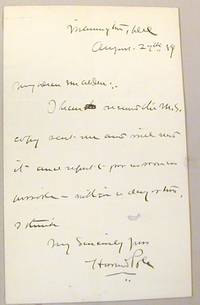 Wilmington, Del
August 27th 89
My dear Mr Alden:
I have received the M.S.
copy sent me and will read
it and report to you as soon as
possible – within a day or two,
I think
Very Sincerely Yours
Howard Pyle